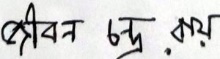 জীবন চন্দ্র রায়